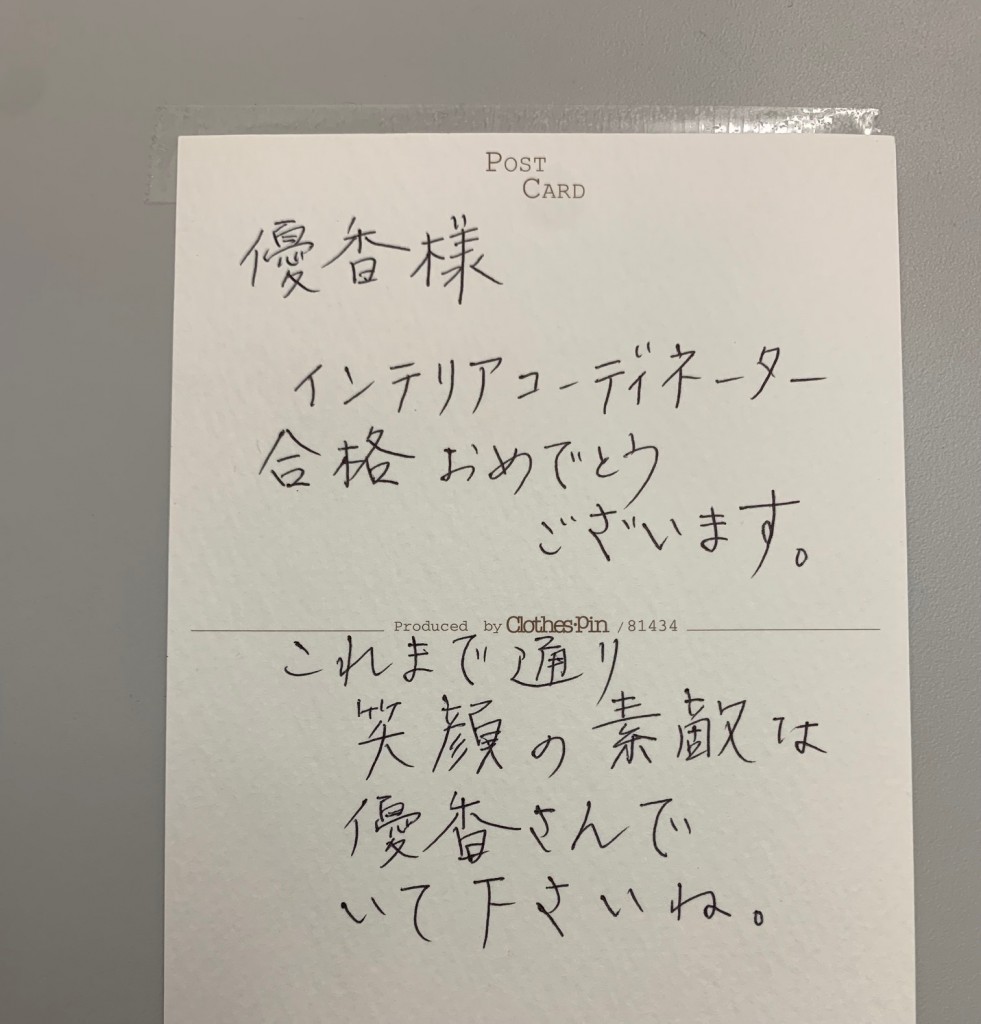 POST
CARD
優香様
インテリアコーディネーター
合格おめでとう
ございます。
Produced by Clothes・Pin /81434
これまで通り
笑顔の素敵な
優香さんで
いて下さいね。